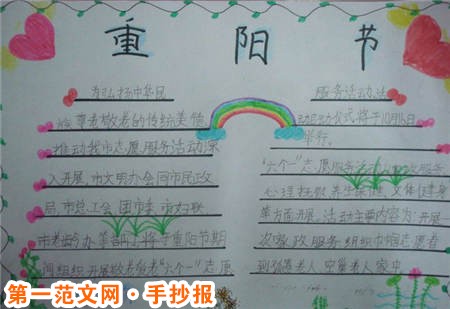 重阳节
为弘扬中华民
族尊老敬老的传统美德
推动我市志愿服务活动深
入开展,市文明办会同市民政
局、市总工会、团市委、市妇联
市老龄办等部门将于重阳节期
间组织开展敬老爱老“六个一”志愿
服务活动,活
动启动仪式将于10月15日
举行。
“六个一”志愿服务活动
心理抚慰 养生保健、文体健身
等方面开展,活动主要内容为:开展一
次家政服务组织巾帼志愿者
到孤寡老人 空巢老人家中
第一范文网·手抄报